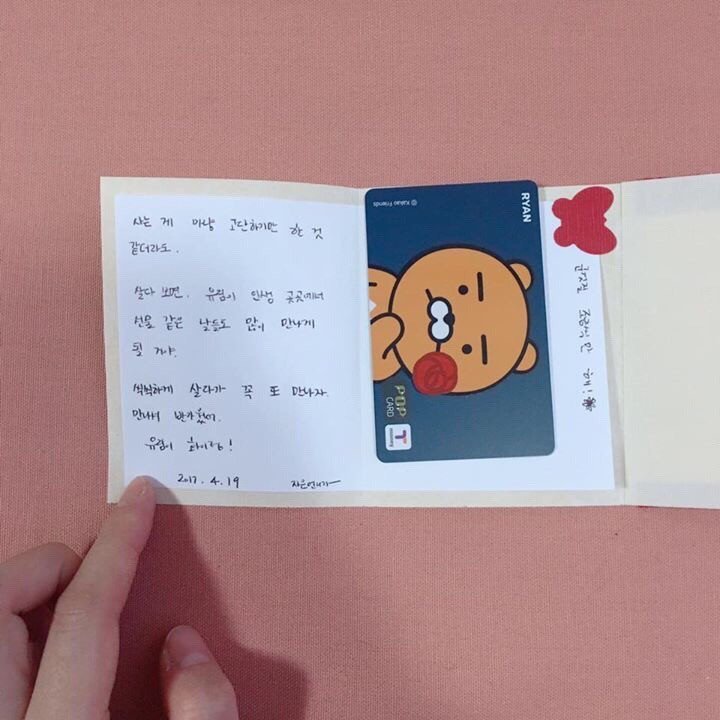 사는 게 마냥 고단하기만 한 것
같더라도.
살다 보면, 유림이 인생 곳곳에서
선물 같은 날들도 많이 만나게
될 거야.
씩씩하게 살다가 꼭 또 만나자.
만나서 반가웠어.
유림이 화이팅!
2017. 4. 19
자은언니가
RYAN
© Kakao Friends
POP
CARD
T
money
군것질 조금씩만 해!